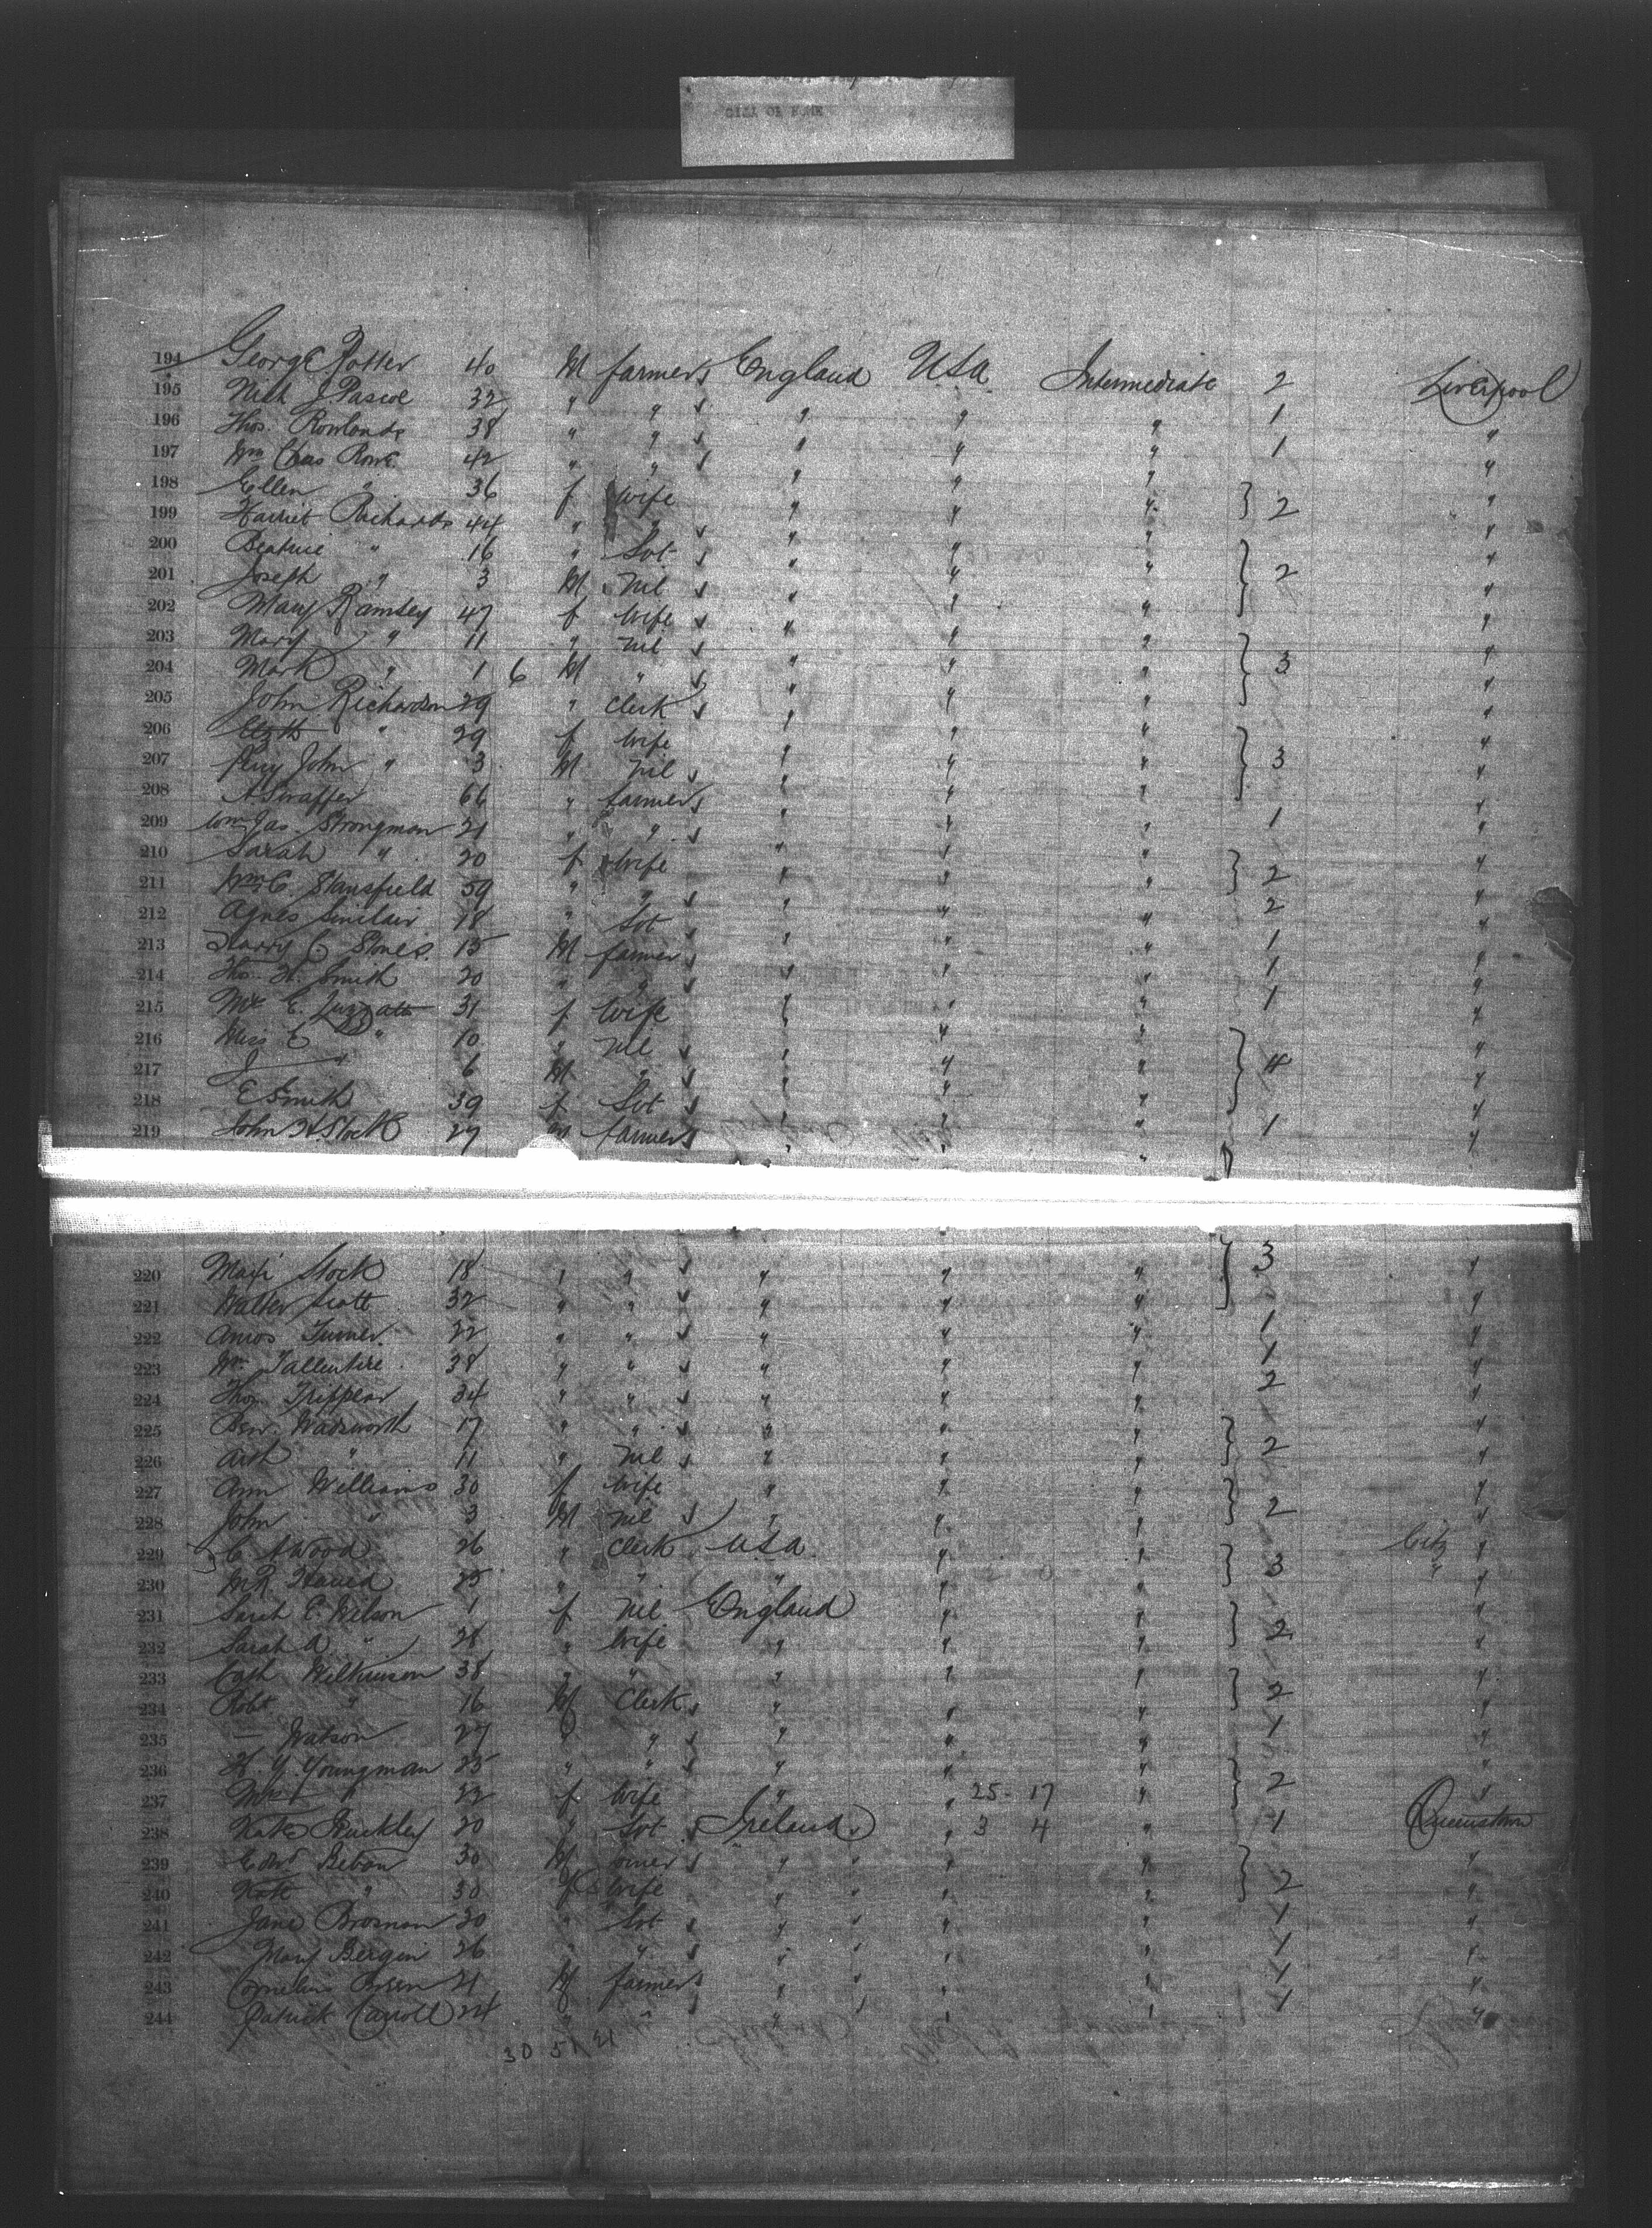 194 George Potter 40 M farmer England USA Intermediate 2 Liverpool
195 Nich J Pascoe 32 " " " " " 1 "
196 Thos. Rowlands 38 " " " " " 1 "
197 Wm Chas Rowe 42 " " " " " "
198 Ellen " 36 f wife " " " } 2 "
199 Harriet Richards 44 " " " " " "
200 Beatrice " 16 " Svt " " " "
201 Joseph " 3 M nil " " " } 2 "
202 Mary Ramsey 47 f wife " " " "
203 Mary " 11 " nil " " " "
204 Mark " 1 6 M " " " " } 3 "
205 John Richardson 29 " Clerk " " " "
206 Elizth " 29 f wife " " " "
207 Percy John " 3 M nil " " " } 3 "
208 A 66 " farmer " " " 1 "
209 Wm Jas Strongman 21 " " " " " "
210 Sarah " 20 f wife " " " } 2 "
211 Wm C. Stansfield 59 " " " " " 2 "
212 Agnes Sinclair 18 " Svt " " " 1 "
213 Harry C Stones 15 M farmer " " " 1 "
214 Thos. H. Smith 20 " " " " " 1 "
215 E. Luzzatto 31 f wife " " " "
216 Miss E " 10 " nil " " " "
217 J " 6 M " " " " } 4 "
218 E Smith 39 f Svt " " " "
219 John H. Stock 27 M farmer " " " 1 "
220 Stock 18 " " " " " } 3 "
221 Walter Scott 32 " " " " " "
222 Amos Turner 22 " " " " " 1 "
223 Wm Tallentire 38 " " " " " 1 "
224 Thos 34 " " " " " 2 "
225 Benj. Wadsworth 17 " " " " " "
226 Arth " 11 " nil " " " } 2 "
227 Ann Williams 30 f wife " " " "
228 John " 3 M nil " " " } 2 "
229 C A Wood 26 " Clerk USA " " Citz "
230 25 " " " " " } 3 " "
231 Sarah E. Wilson 1 f nil England " " "
232 Sarah A " 28 " wife " " " } 2 "
233 Cath Wilkinson 38 " " " " " "
234 Robt " 16 M Clerk " " " } 2 "
235 — Watson 27 " " " " " 1 "
236 H. Y. Youngman 25 " " " " " "
237 Mrs " 22 f wife " " 25 17 " } 2 "
238 Kate Buckley 20 " Svt Ireland " 3 4 " 1 Queenstown
239 Edwd 30 M " " " "
240 Kate " 30 f wife " " " } 2 "
241 Jane Brosnan 20 " Svt " " " 1 "
242 Mary Bergin 26 " " " " " 1 "
243 Cornelius 21 M farmer " " " 1 "
244 Patrick Carroll 24 " " " " " 1 "
30 51 21